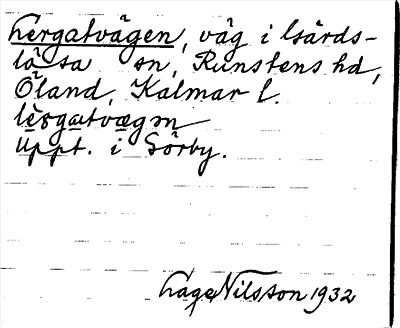 Lergatvägen, väg i Gärds-
lösa sn, Runstens hd,
Öland, Kalmar l.
lèrgatvægən
Uppt. i Sörby.
Tage Nilsson 1932